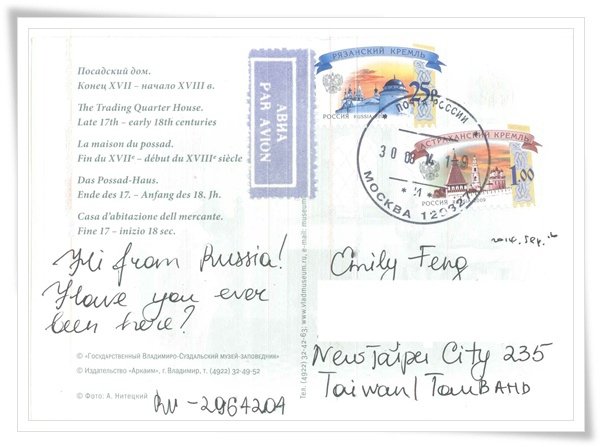 Посадский дом.
Конец XVII – начало XVIII в.
The Trading Quarter House.
Late 17th – early 18th centuries
La maison du possad.
Fin du XVIIᵉ – début du XVIIIᵉ siècle
Das Possad-Haus.
Ende des 17. – Anfang des 18. Jh.
Casa d'abitazione dell mercante.
Fine 17 – inizio 18 sec.
АВИА
PAR AVION
РЯЗАНСКИЙ КРЕМЛЬ
25р
РОССИЯ RUSSIA
АСТРАХАНСКИЙ КРЕМЛЬ
1.00
РОССИЯ 2009
РОССИИ
30 08 14
МОСКВА
Hi from Russia!
Have you ever
been here?
Emily Feng
New Taipei City 235
Taiwan / Тайвань
© «Государственный Владимиро-Суздальский музей-заповедник»
© Издательство «Аркаим», г. Владимир, т. (4922) 32-49-52
© Фото: А. Нитецкий
(4922) 32-42-63; www.vladmuseum.ru, e-mail:
RU-2964204